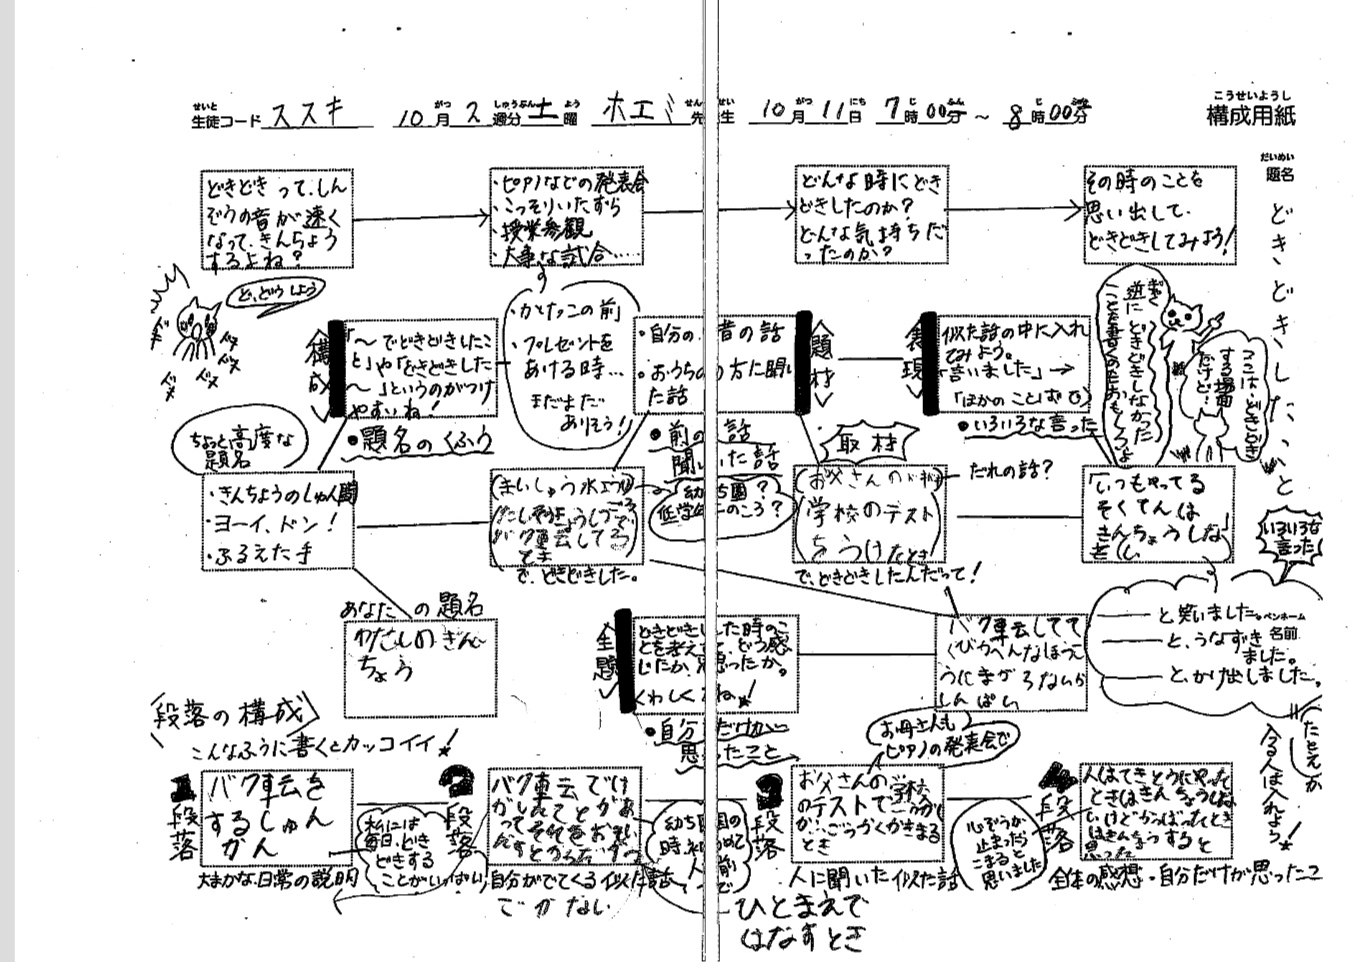 せいと
生徒コード ススキ 10月2週分土曜 ホエミ先生 10月11日 7時00分～8時00分
こうせいようし
構成用紙
だいめい
題名
どきどきしたこと
どきどきって、しん
ぞうの音が速く
なって、きんちょう
するよね？
・ピアノなどの発表会
・こっそりいたずら
・授業参観
・大事な試合……
どんな時にどき
どきしたのか？
どんな気持ちだ
ったのか？
その時のことを
思い出して、
どきどきしてみよう！
ど、どうしよう
ドキ
ドキ
ドキ
ドキ
構成
「～でどきどきしたこ
と」や「どきどきした
～」というのがつけ
やすいね！
●題名のくふう
・かけっこの前
・プレゼントを
あける時…
まだまだ
ありそう！
・自分の 昔の話
・おうちの方に聞い
た話
●前の話
聞いた話
題材
表現
似た話の中に入れ
てみよう。
「言いました」→
「ほかのことばで」
●いろいろな言った
逆にどきどきしなかった
ことを書くのもおもしろいよ
ここは、どきどき
する場面
だけど…
ちょっと高度な
題名
・きんちょうのしゅん間
・ヨーイ、ドン！
・ふるえた手
バク車云してる
とき
で、どきどきした。
幼ち園？
低学年のころ？
取材
お父さんの
学校のテスト
をうけたとき
で、どきどきしたんだって！
だれの話？
「いつもやってる
そくてんは
きんちょうしない」
いろいろな
言った
――と笑いました。
――と、うなずき
ました。
――と、かけ出しました。
ペンネーム
名前
たとえが
入る人は入れよう！
あなたの題名
わたしのきん
ちょう
主題
どきどきした時のこ
とを考えて、どう感
じたか、思ったか。
くわしくね！
●自分だけが
思ったこと
バク車云してて
くびがへんなほうこ
うにまがらないか
しんぱい
お母さんも
ピアノの発表会で
段落の構成
こんなふうに書くとカッコイイ！
1段落
バク車云を
するしゅん
かん
大まかな日常の説明
私には
毎日、どき
どきする
ことがいっぱい
2段落
バク車云でけ
がしたことがあ
って それをおもい
だすとからだがう
ごかない
自分がでてくる似た話
幼ち園の
時、初めて
人前で
ひとまえで
はなすとき
3段落
お父さんの学校
のテストでごうかく
か、ふごうかくかきまる
とき
人に聞いた似た話
心ぞうが
止まったら
こまると
思いました
4段落
人はてきとうにやった
ときはきんちょうしな
いけどがんばったとき
はきんちょうすると
思った
全体の感想・自分だけが思ったこ